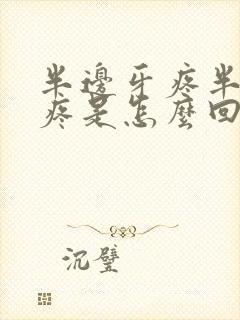 半邊牙疼半
疼是怎麼回
沉璧